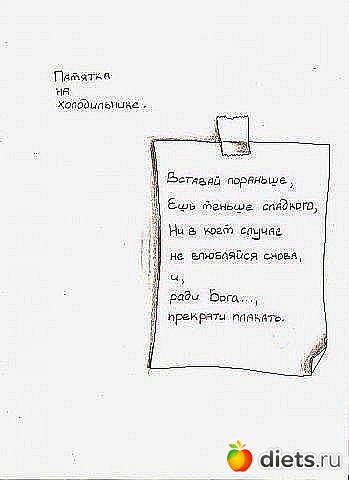 Памятка
на
холодильнике.
Вставай пораньше,
Ешь меньше сладкого,
Ни в коем случае
не влюбляйся снова,
и,
ради Бога...,
прекрати плакать.
diets.ru